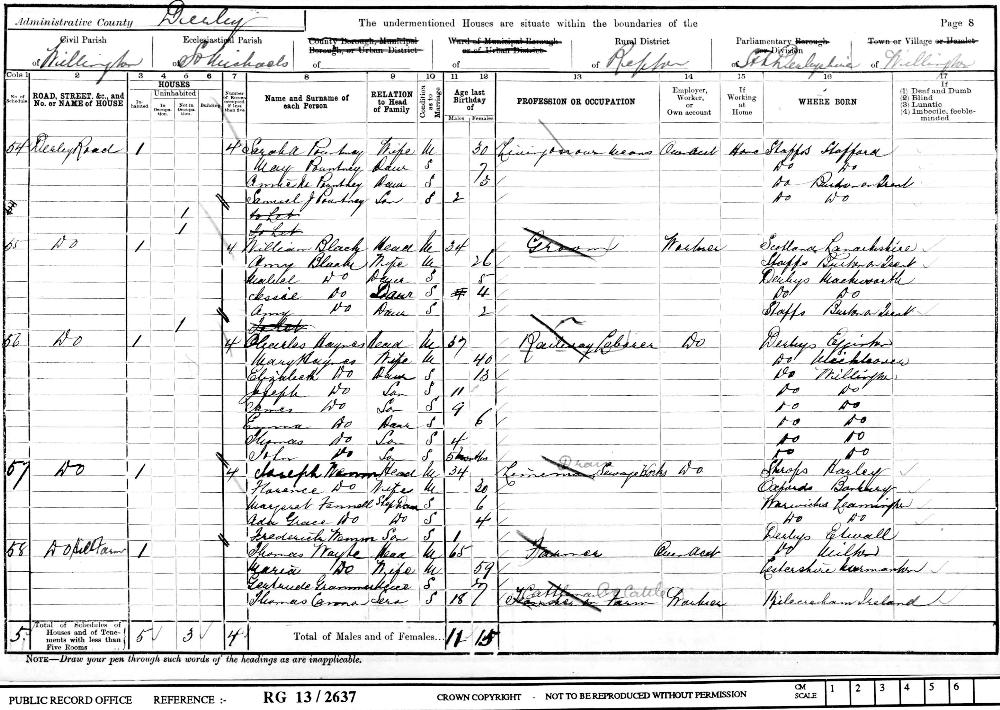 Administrative County Derby The undermentioned Houses are situate within the boundaries of the Page 8
Civil Parish Ecclesiastical Parish County Borough, Municipal Borough, or Urban District Ward of Municipal Borough or of Urban District Rural District Parliamentary Borough or Division Town or Village or Hamlet
of Willington of St Michaels of of of Repton of of Willington
Cols 1 2 3 4 5 6 7 8 9 10 11 12 13 14 15 16 17
No. of Schedule ROAD, STREET, &c., and No. or NAME of HOUSE HOUSES Inhabited Uninhabited In Occupation Not in Occupation Building Number of Rooms occupied if less than five Name and Surname of each Person RELATION to Head of Family Condition as to Marriage Age last Birthday of Males Females PROFESSION OR OCCUPATION Employer, Worker, or Own account If Working at Home WHERE BORN (1) Deaf and Dumb (2) Blind (3) Lunatic (4) Imbecile, feeble-minded
54 Derby Road 1 4 Sarah A Pountney Wife M 30 Living on our Means Own acct Staffs Stafford
May Pountney Daur S 7 Do Do
Annie M Pountney Daur S 5 Do Burton on Trent
Samuel J Pountney Son S 2 Do Do
1 To Let
1 To Let
55 Do 1 4 William Black Head M 34 Groom Worker Scotland Lanarkshire
Amy Black Wife M 26 Staffs Burton on Trent
Mabel Do Daur S 5 Derbys Mackworth
Jessie Do Daur S 4 Do Do
Amy Do Daur S 2 Staffs Burton on Trent
1 To Let
56 Do 1 4 Charles Haynes Head M 37 Railway Laborer Do Derbys Egginton
Mary Haynes Wife M 40 Do Mickleover
Elizabeth Do Daur S 13 Do Willington
Joseph Do Son S 11 Do Do
James Do Son S 9 Do Do
Emma Do Daur S 6 Do Do
Thomas Do Son S 4 Do Do
John Do Son S 5 months Do Do
57 Do 1 4 Joseph Head M 34 Sewage Works Do Shrops Harley
Florence Do Wife M 30 Oxfords Banbury
Margaret Fennell Step Daur S 6 Warwicks Leamington
Ada Grace Do Do S 4 Do Do
Frederick Son S 1 Derbys Etwall
58 Do Farm 1 Thomas Wayte Head M 65 Farmer Own Acct Do Milton
Maria Do Wife M 59 Leicestershire Normanton
Gertrude S 7
Thomas Serv S 18 Cattleman on Farm Worker Ireland
5 Total of Schedules of Houses and of Tenements with less than Five Rooms 5 3 4 Total of Males and of Females... 11 15
NOTE—Draw your pen through such words of the headings as are inapplicable.
PUBLIC RECORD OFFICE REFERENCE :- RG 13/2637 CROWN COPYRIGHT - NOT TO BE REPRODUCED WITHOUT PERMISSION CM SCALE 1 2 3 4 5 6